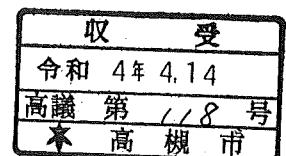 収受
令和 4年 4.14
高議 第 118 号
★ 高槻市